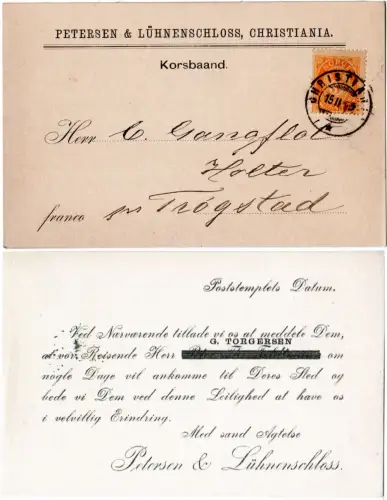 PETERSEN & LÜHNENSCHLOSS, CHRISTIANIA.
Korsbaand.
CHRISTIANIA
15 II
Herr C. Gangflot
Holter
franco pr Trøgstad
Poststemplets Datum.
Ved Nærværende tillade vi os at meddele Dem,
G. TORGERSEN
at vor Reisende Herr om
nogle Dage vil ankomme til Deres Sted og
bede vi Dem ved denne Leilighed at have os
i velvillig Erindring.
Med sand Agtelse
Petersen & Lühnenschloss.